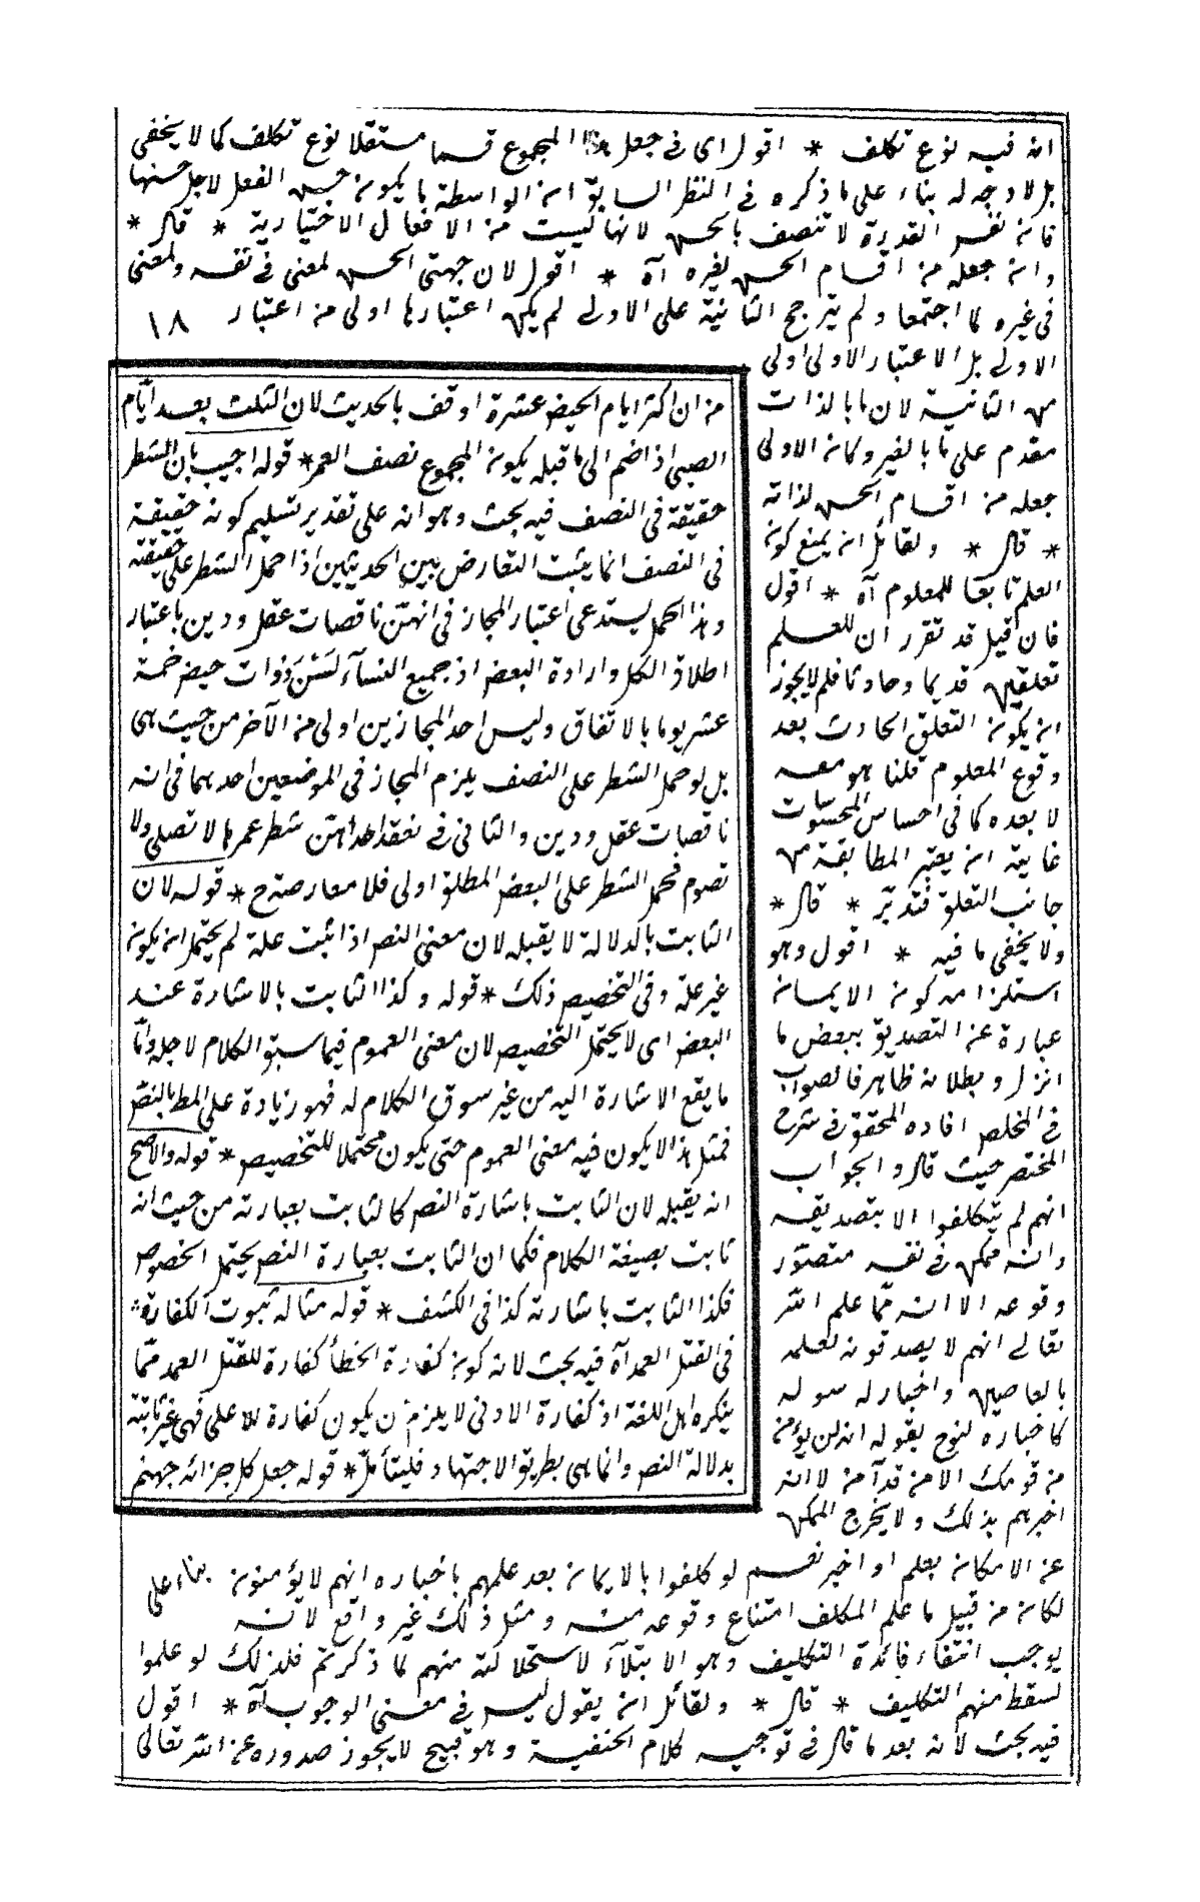 انه فيه نوع تكلف * اقول اى فى جعل هذا المجموع قسما مستقلا نوع تكلف كما لا يخفى
بل لا وجه له بناء على ما ذكره فى النظر السابق ان الواسطة ما يكون حسن الفعل لاجل حسنها
فان نفس القدرة لا تتصف بالحسن لانها ليست من الافعال الاختيارية * قال *
وان جعله من اقسام الحسن لغيره آه * اقول لان جهتى الحسن لمعنى فى نفسه ولمعنى
فى غيره لما اجتمعا ولم يترجح الثانية على الاولى لم يكن اعتبارها اولى من اعتبار ١٨
الاولى بل الاعتبار الاولى اولى
من الثانية لان ما بالذات
مقدم على ما بالغير وكان الاولى
جعله من اقسام الحسن لذاته
* قال * ولقائل ان يمنع كون
العلم تابعا للمعلوم آه * اقول
فان قيل قد تقرر ان للعلم
تعلقين قديما وحادثا فلم لا يجوز
ان يكون التعلق الحادث بعد
وقوع المعلوم قلنا هو معه
لا بعده كما فى احساس المحسوسات
غاية ان يعتبر المطابقة من
جانب التعلق فتدبر * قال *
ولا يخفى ما فيه * اقول وهو
استلزامه كون الايمان
عبارة عن التصديق ببعض ما
انزل وبطلانه ظاهر فالصواب
فى المخلص افاده المحقق فى شرح
المختصر حيث قال والجواب
انهم لم يتكلفوا الا بتصديقه
وانه ممكن فى نفسه متصور
وقوعه الا انه مما علم الله
تعالى انهم لا يصدقونه لعلمه
بالعاصين واخباره لرسوله
كاخباره لنوح بقوله انه لن يؤمن
من قومك الا من قد آمن لا انه
اخبرهم بذلك ولا يخرج الممكن
عن الامكان بعلم او اخبر نعم لو كلفوا بالايمان بعد علمهم باخباره انهم لا يؤمنون بناء على
لكان من قبيل ما علم المكلف امتناع وقوعه منه ومثل ذلك غير واقع لانه
يوجب انتفاء فائدة التكليف وهو الابتلاء لاستحالته منهم لما ذكرتم فلذلك لو علموا
لسقط منهم التكليف * قال * ولقائل ان يقول ليس فى معنى الوجوب آه * اقول
فيه بحث لانه بعد ما قال فى توجيه كلام الحنفية وهو قبيح لا يجوز صدوره عن الله تعالى
من ان اكثر ايام الحيض عشرة اوقف بالحديث لان الثلث بعد ايام
الصبى اذا ضم الى ما قبله يكون المجموع نصف العمر * قوله اجيب بان الشطر
حقيقة فى النصف فيه بحث وهو انه على تقدير تسليم كونه حقيقة
فى النصف انما يثبت التعارض بين الحديثين اذا حمل الشطر على حقيقته
وهذا الحمل يستدعى اعتبار المجاز فى انهن ناقصات عقل ودين باعتبار
اطلاق الكل وارادة البعض اذ جميع النساء لسن ذوات حيض خمسة
عشر يوما بالاتفاق وليس احد المجازين اولى من الآخر من حيث هى
بل لو حمل الشطر على النصف يلزم المجاز فى الموضعين احدهما فى انه
ناقصات عقل ودين والثانى فى تقعد احداهن شطر عمرها لا تصلى ولا
تصوم فحمل الشطر على البعض المطلق اولى فلا معارضة ح * قوله لان
الثابت بالدلالة لا يقبله لان معنى النص اذا ثبت علة لم يحتمل ان يكون
غير علة وفى التخصيص ذلك * قوله وكذا الثابت بالاشارة عند
البعض اى لا يحتمل التخصيص لان معنى العموم فيما سيق الكلام لاجله واما
ما يقع الاشارة اليه من غير سوق الكلام له فهو زيادة على المط بالنص
فمثل هذا لا يكون فيه معنى العموم حتى يكون محتملا للتخصيص * قوله والاصح
انه يقبله لان الثابت باشارة النص كالثابت بعبارته من حيث انه
ثابت بصيغة الكلام فكما ان الثابت بعبارة النص يحتمل الخصوص
فكذا الثابت باشارته كذا فى الكشف * قوله مثاله ثبوت الكفارة
فى القتل العمد آه فيه بحث لانه كون كفارة الخطأ كفارة للقتل العمد مما
ينكره اهل اللغة اذ كفارة الادنى لا يلزم ان يكون كفارة للاعلى فهى غير ثابتة
بدلالة النص وانما هى بطريق الاجتهاد فليتأمل * قوله جعل كل جزائه جهنم